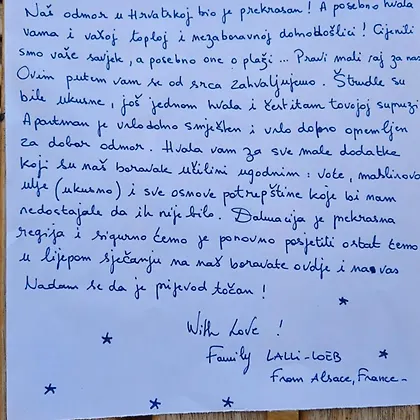 Naš odmor u Hrvatskoj bio je prekrasan! A posebno hvala
vama i vašoj toploj i nezaboravnoj dobrodošlici! Cijenili
smo vaše savjek, a posebno one o plaži... Pravi mali raj za nas
Ovim putem vam se od srca zahvaljujemo. Štrudle su
bile ukusne, još jednom hvala i čestitam tovojoj supruzi
Apartman je vrlo dobro smješten i vrlo dobro opremljen
za dobar odmor. Hvala vam za sve male dodatke
koji su naš boravak učilini ugodnim: voće, maslinovo
ulje (ukusno) i sve osnove potrepštine koje bi nam
nedostajale da ih nije bilo. Dalmacija je prekrasna
regija i sigurno ćemo je ponovno posjetiti ostat ćemo
u lijepom sjećanju na naš boravate ovdje i na vas
Nadam se da je prijevod točan!
With Love !
Family LALLI-LOEB
From Alsace, France-